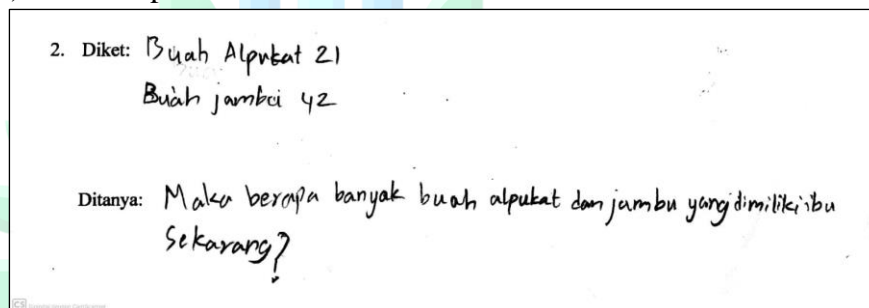 2. Diket: Buah Alpukat 21
Buah jambu 42
Ditanya: Maka berapa banyak buah alpukat dan jambu yang dimiliki ibu
Sekarang?
CS